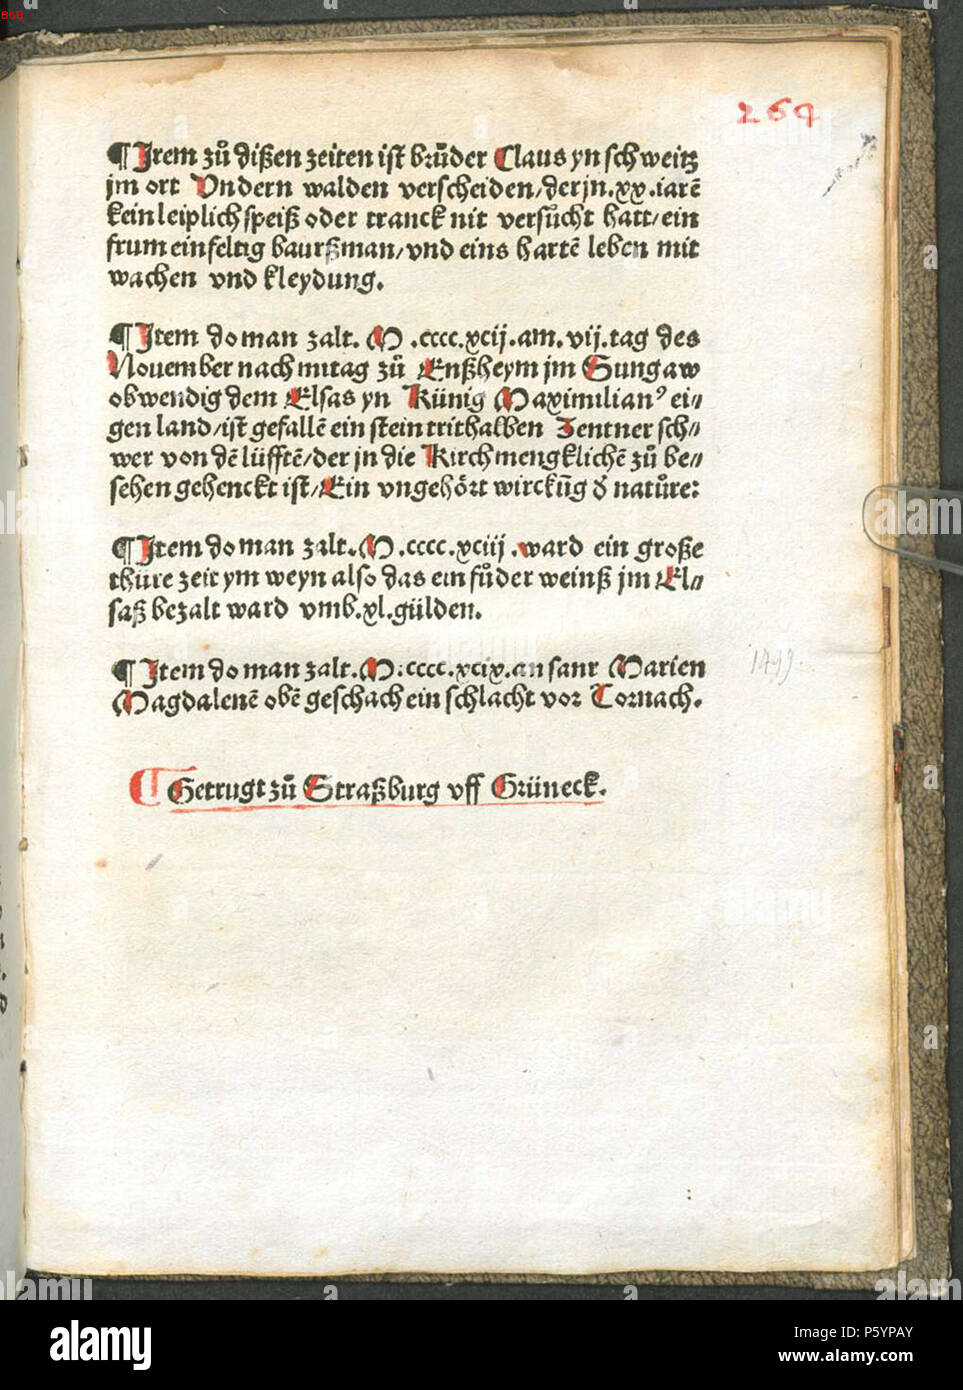 868
264
¶ Jtem zů dißen zeiten ist brůder Claus yn schweitz
jm ort Vndern walden verscheiden/der jn.xx.iarē
kein leiplich speiß oder tranck nit versůcht hatt/ein
frum einfeltig baurßman/vnd eins hartē leben mit
wachen vnd kleydung.
¶ Jtem do man zalt. M .cccc.xcij.am.vij.tag des
Nouember nach mitag zů Enßheym jm Sungaw
obwendig dem Elsas yn Künig Maximilianꝰ ei⸗
gen land/ist gefallē ein stein trithalben Zentner sch⸗
wer von dē lüfftē/der jn die Kirch mengklichē zů be⸗
sehen gehenckt ist/Ein vngehört wirckūg d̄ natůre:
¶ Jtem do man zalt.M .cccc.xciij .ward ein große
thüre zeit ym weyn also das ein fůder weinß jm El⸗
saß bezalt ward vmb.xl.gülden.
¶ Jtem do man zalt.M.cccc.xcix.an sant Marien
Magdalenē obē geschach ein schlacht vor Tornach.
1499
Getrugt zů Straßburg vff Grüneck.
alamy
Image ID: P5YPAY
www.alamy.com